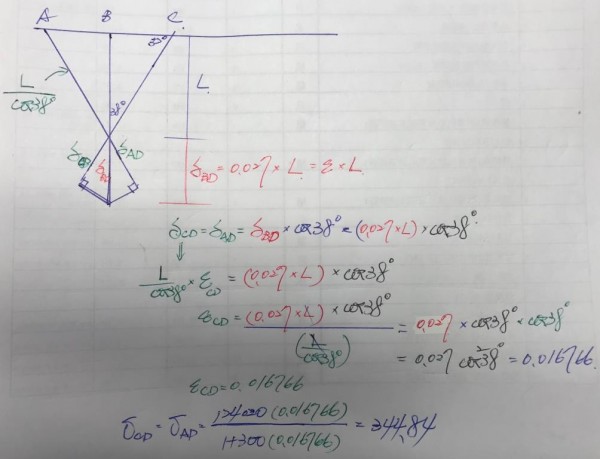 A B C
52°
L
L/cos38°
38°
δCD δBD δAD
δBD = 0.027 × L = ε × L
δCD = δAD = δBD × cos38° = (0.027 × L) × cos38°
L/cos38° × εCD = (0.027 × L) × cos38°
εCD = (0.027 × L) × cos38° / (L/cos38°) = 0.027 × cos38° × cos38°
= 0.027 cos²38° = 0.016766
εCD = 0.016766
σCD = σAD = 124000 (0.016766) / 1+300 (0.016766) = 344.84